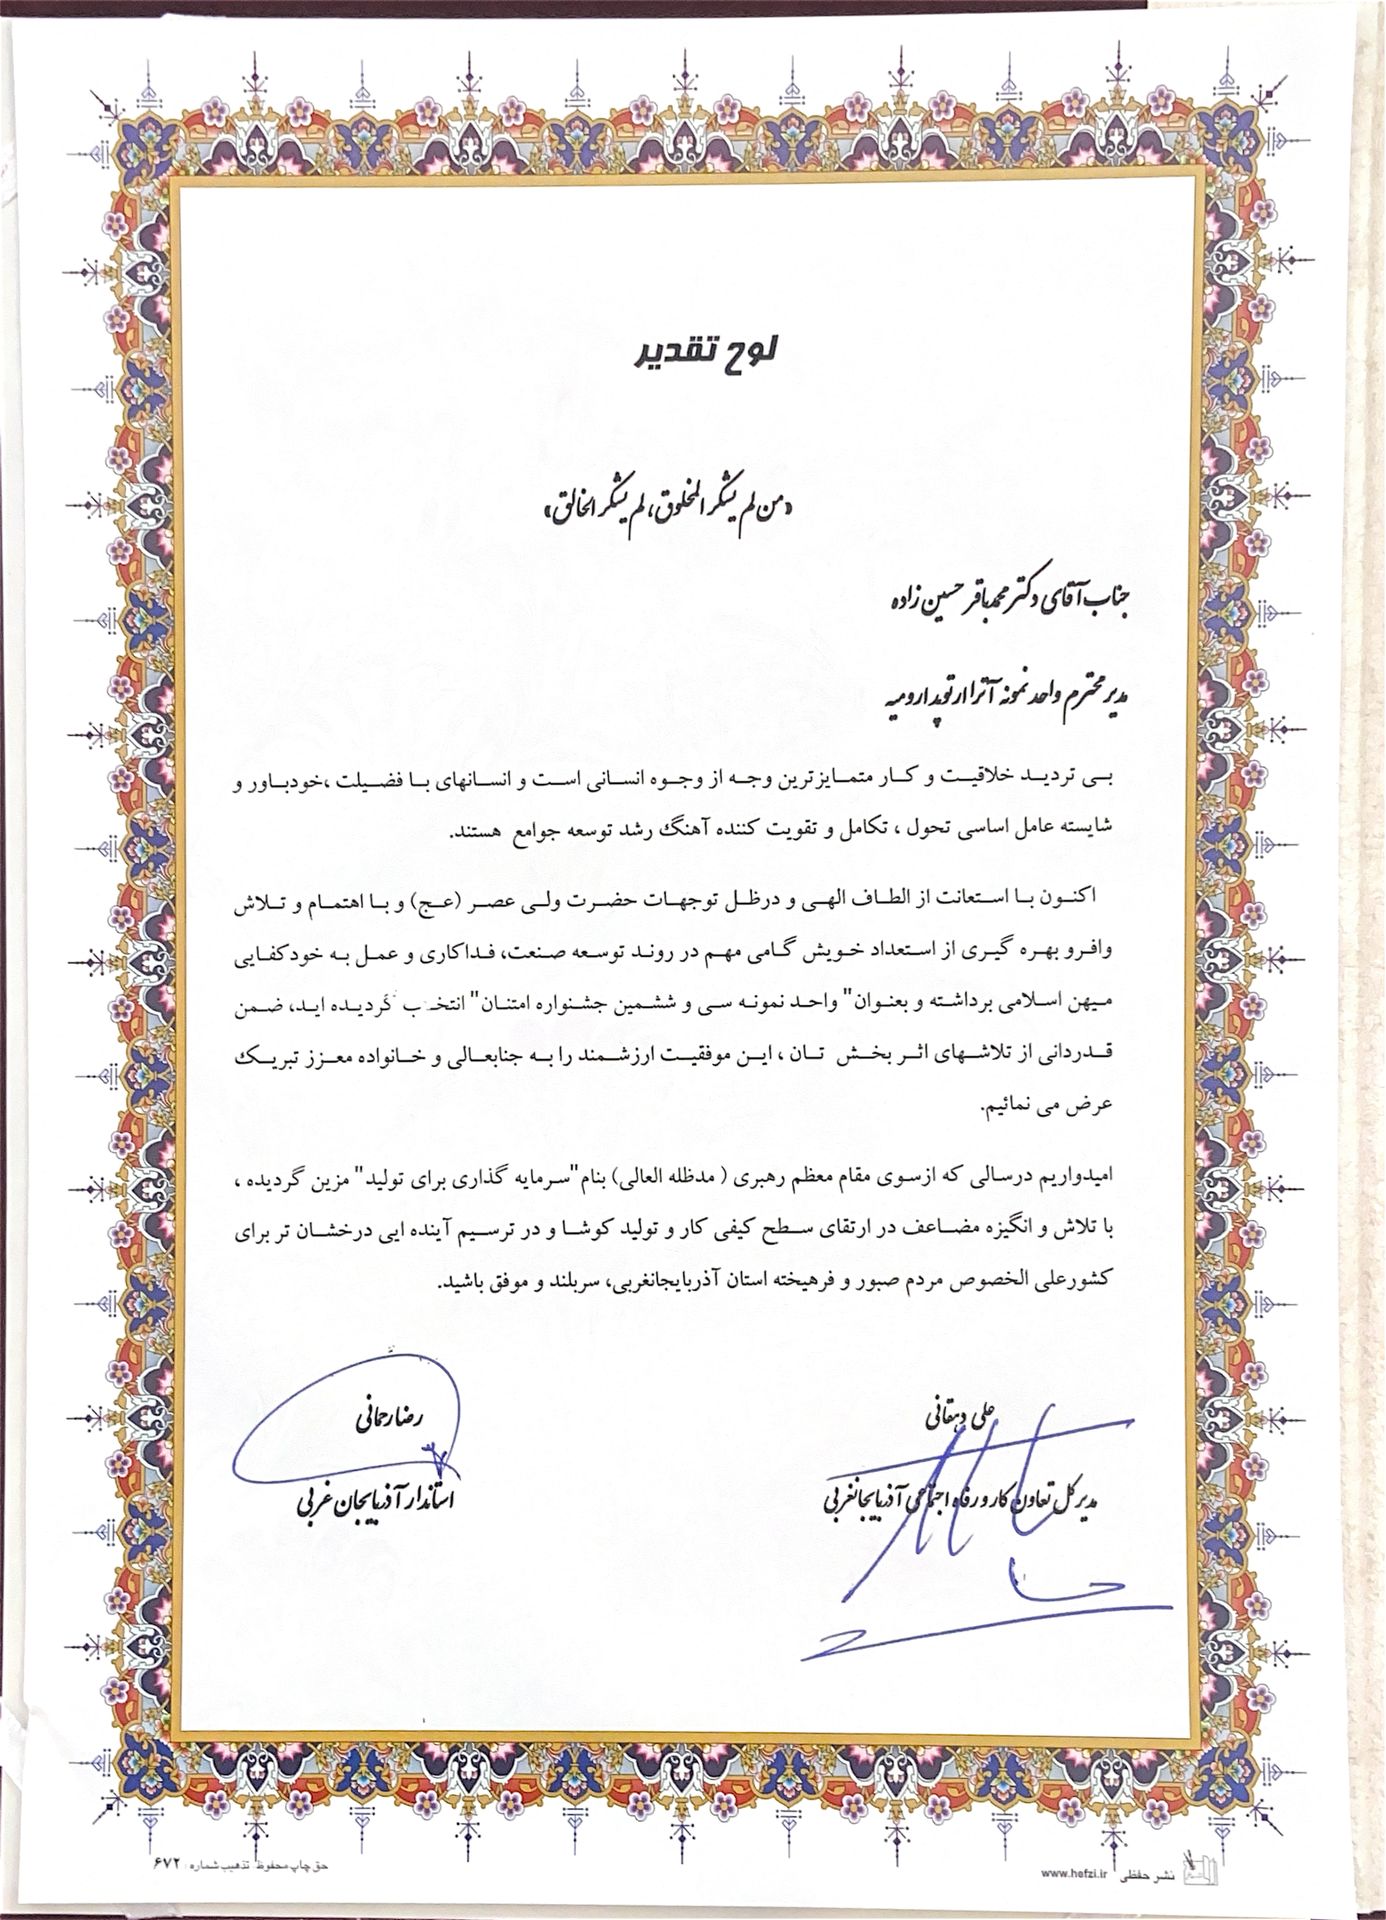 لوح تقدیر
«من لم یشکر المخلوق، لم یشکر الخالق»
جناب آقای دکتر محمدباقر حسین زاده
مدیر محترم واحد نمونه آترا ارتوپد ارومیه
بی تردید خلاقیت و کار متمایزترین وجه از وجوه انسانی است و انسانهای با فضیلت ،خودباور و
شایسته عامل اساسی تحول ، تکامل و تقویت کننده آهنگ رشد توسعه جوامع هستند.
اکنون با استعانت از الطاف الهی و درظل توجهات حضرت ولی عصر (عج) و با اهتمام و تلاش
وافرو بهره گیری از استعداد خویش گامی مهم در روند توسعه صنعت، فداکاری و عمل به خودکفایی
میهن اسلامی برداشته و بعنوان" واحد نمونه سی و ششمین جشنواره امتنان" انتخاب گردیده اید، ضمن
قدردانی از تلاشهای اثر بخش تان ، این موفقیت ارزشمند را به جنابعالی و خانواده معزز تبریک
عرض می نمائیم.
امیدواریم درسالی که ازسوی مقام معظم رهبری ( مدظله العالی) بنام"سرمایه گذاری برای تولید" مزین گردیده ،
با تلاش و انگیزه مضاعف در ارتقای سطح کیفی کار و تولید کوشا و در ترسیم آینده ایی درخشان تر برای
کشورعلی الخصوص مردم صبور و فرهیخته استان آذربایجانغربی، سربلند و موفق باشید.
علی دهقانی
مدیرکل تعاون کار و رفاه اجتماعی آذربایجانغربی
رضا رحمانی
استاندار آذربایجان غربی
نشر حفظی www.hefzi.ir
حق چاپ محفوظ تذهیب شماره : ۶۷۲